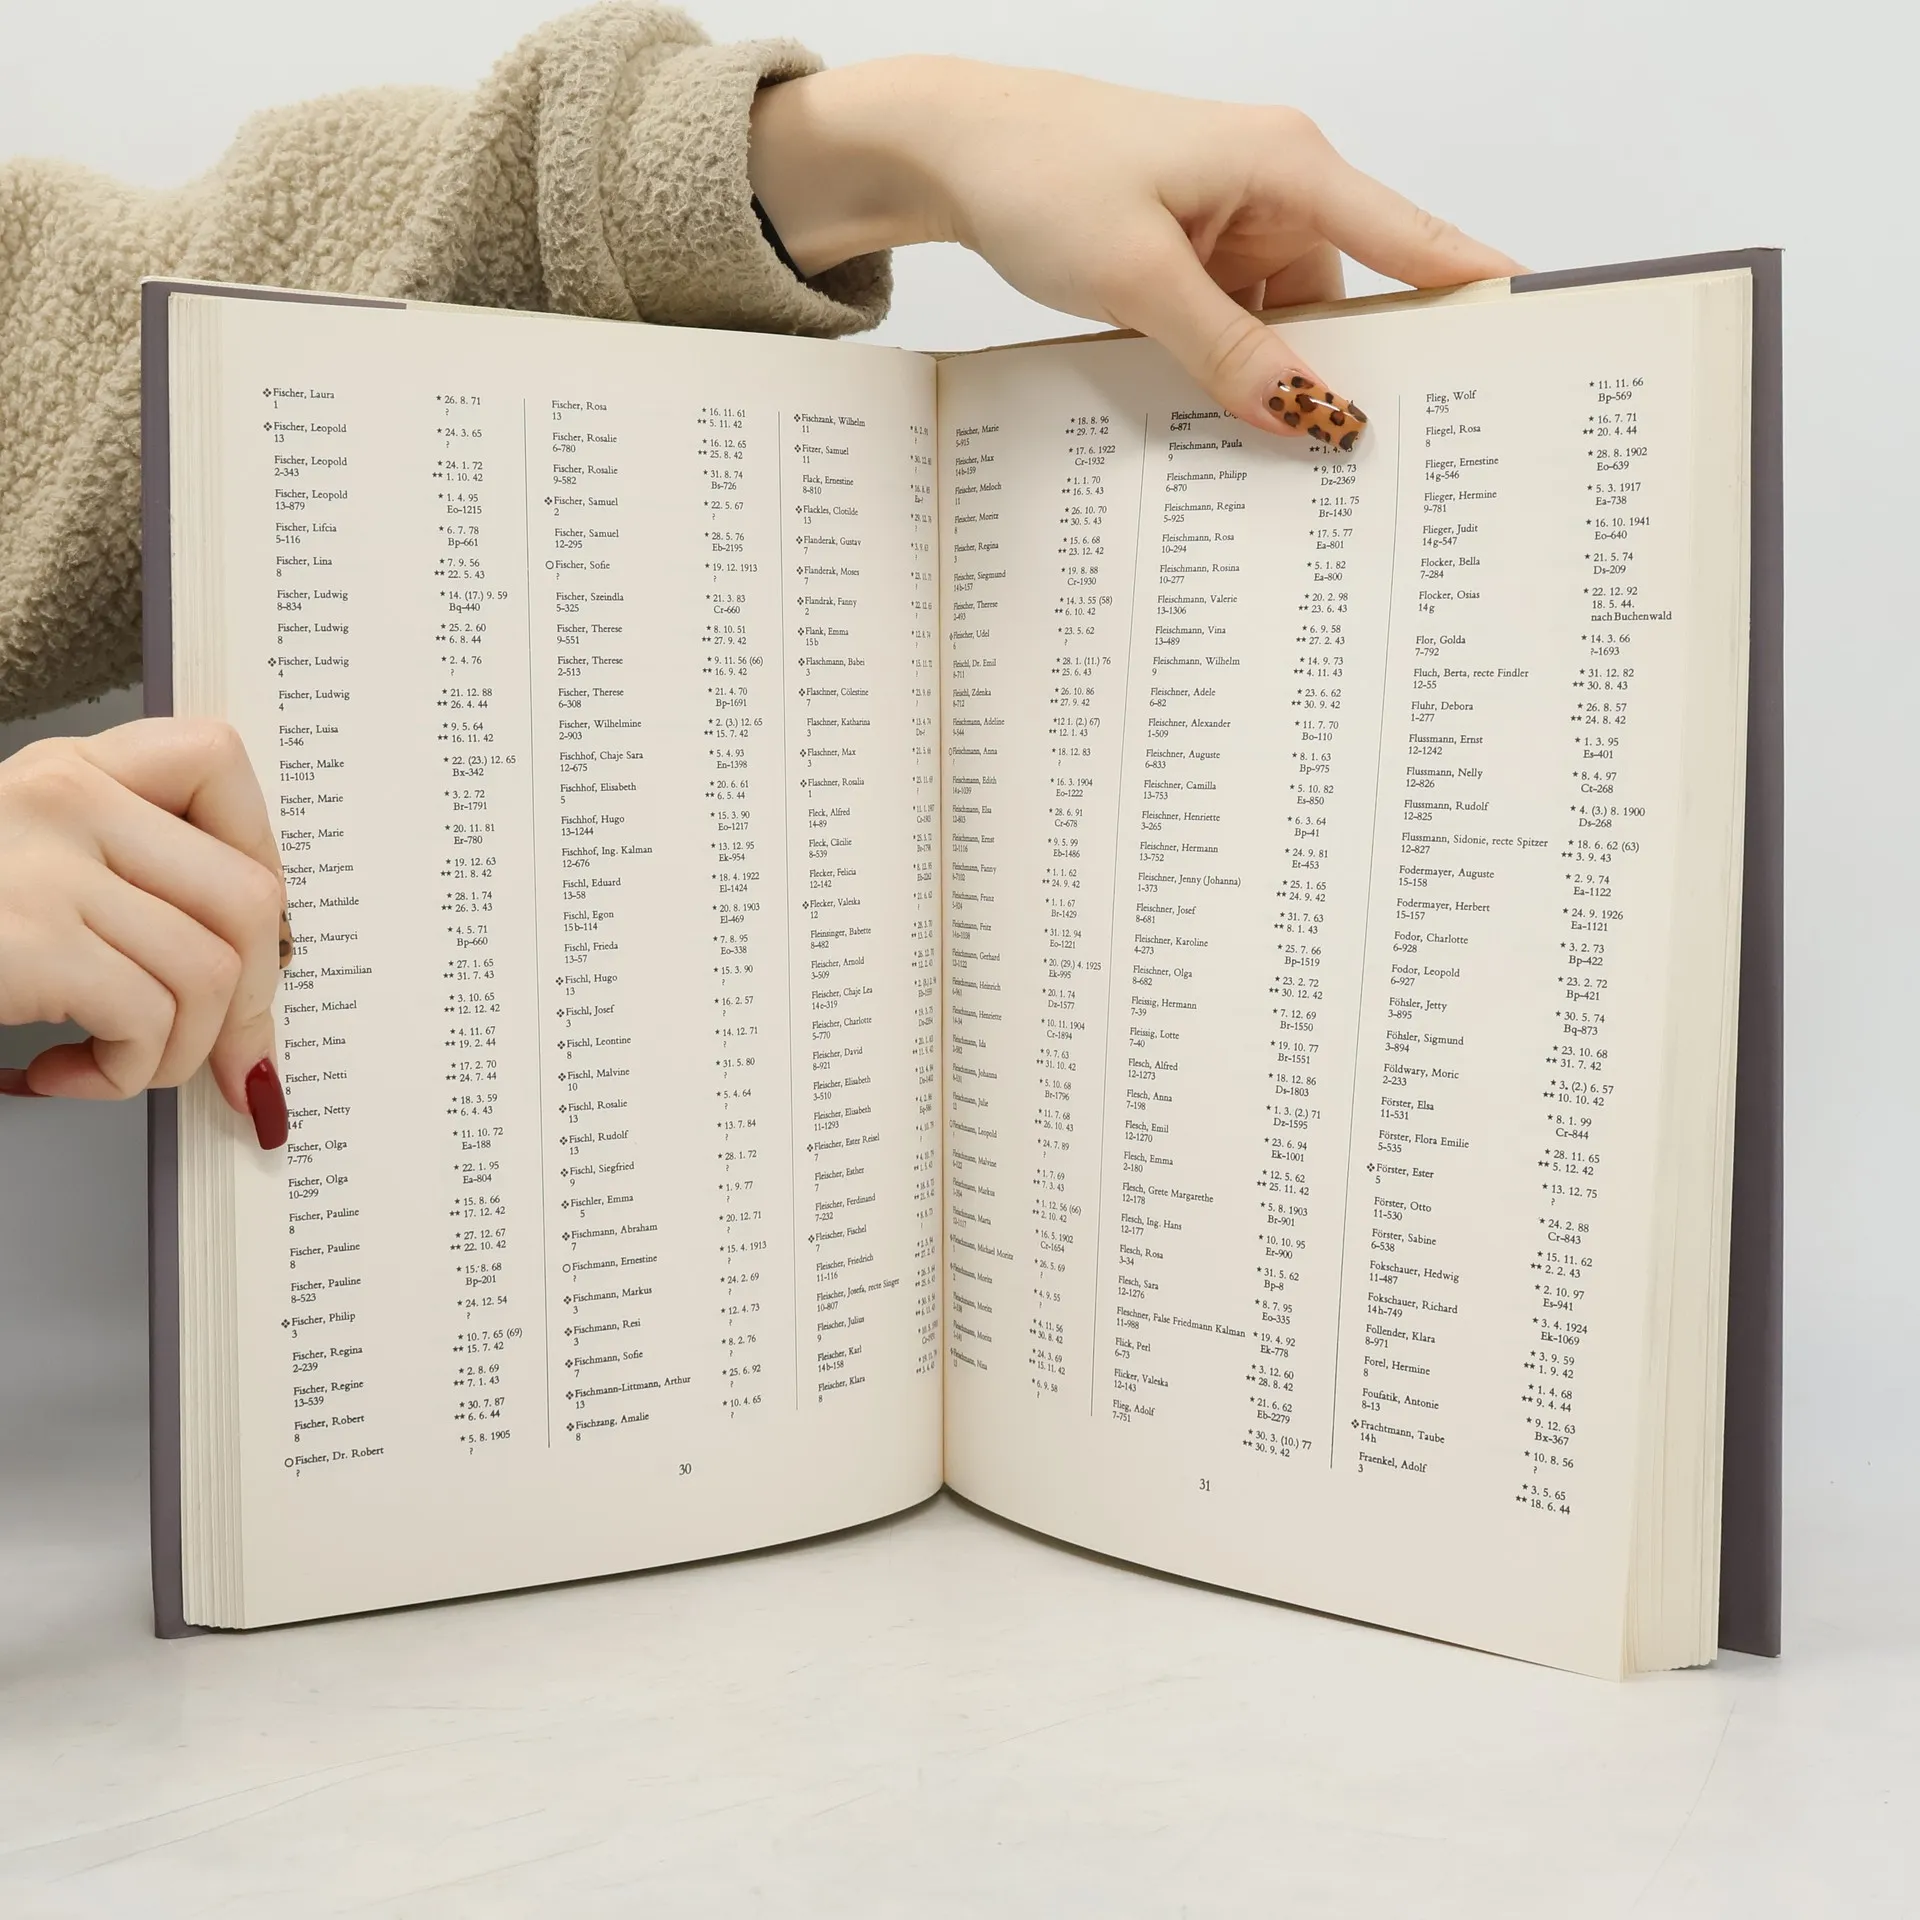 ❖Fischer, Laura * 26. 8. 71
1 ?
❖Fischer, Leopold * 24. 3. 65
13 ?
Fischer, Leopold * 24. 1. 72
2-343 ** 1. 10. 42
Fischer, Leopold * 1. 4. 95
13-879 Eo-1215
Fischer, Lifcia * 6. 7. 78
5-116 Bp-661
Fischer, Lina * 7. 9. 56
8 ** 22. 5. 43
Fischer, Ludwig * 14. (17.) 9. 59
8-834 Bq-440
Fischer, Ludwig * 25. 2. 60
8 ** 6. 8. 44
❖Fischer, Ludwig * 2. 4. 76
4 ?
Fischer, Ludwig * 21. 12. 88
4 ** 26. 4. 44
Fischer, Luisa * 9. 5. 64
1-546 ** 16. 11. 42
Fischer, Malke * 22. (23.) 12. 65
11-1013 Bx-342
Fischer, Marie * 3. 2. 72
8-514 Br-1791
Fischer, Marie * 20. 11. 81
10-275 Er-780
Fischer, Marjem * 19. 12. 63
-724 ** 21. 8. 42
ischer, Mathilde * 28. 1. 74
1 ** 26. 3. 43
cher, Mauryci * 4. 5. 71
115 Bp-660
Fischer, Maximilian * 27. 1. 65
11-958 ** 31. 7. 43
Fischer, Michael * 3. 10. 65
3 ** 12. 12. 42
Fischer, Mina * 4. 11. 67
8 ** 19. 2. 44
Fischer, Netti * 17. 2. 70
8 ** 24. 7. 44
Fischer, Netty * 18. 3. 59
14f ** 6. 4. 43
Fischer, Olga * 11. 10. 72
7-776 Ea-188
Fischer, Olga * 22. 1. 95
10-299 Ea-804
Fischer, Pauline * 15. 8. 66
8 ** 17. 12. 42
Fischer, Pauline * 27. 12. 67
8 ** 22. 10. 42
Fischer, Pauline * 15. 8. 68
8-523 Bp-201
❖Fischer, Philip * 24. 12. 54
3 ?
Fischer, Regina * 10. 7. 65 (69)
2-239 ** 15. 7. 42
Fischer, Regine * 2. 8. 69
13-539 ** 7. 1. 43
Fischer, Robert * 30. 7. 87
8 ** 6. 6. 44
○Fischer, Dr. Robert * 5. 8. 1905
? ?
Fischer, Rosa * 16. 11. 61
13 ** 5. 11. 42
Fischer, Rosalie * 16. 12. 65
6-780 ** 25. 8. 42
Fischer, Rosalie * 31. 8. 74
9-582 Bs-726
❖Fischer, Samuel * 22. 5. 67
2 ?
Fischer, Samuel * 28. 5. 76
12-295 Eb-2195
○Fischer, Sofie * 19. 12. 1913
? ?
Fischer, Szeindla * 21. 3. 83
5-325 Cr-660
Fischer, Therese * 8. 10. 51
9-551 ** 27. 9. 42
Fischer, Therese * 9. 11. 56 (66)
2-513 ** 16. 9. 42
Fischer, Therese * 21. 4. 70
6-308 Bp-1691
Fischer, Wilhelmine * 2. (3.) 12. 65
2-903 ** 15. 7. 42
Fischhof, Chaje Sara * 5. 4. 93
12-675 En-1398
Fischhof, Elisabeth * 20. 6. 61
5 ** 6. 5. 44
Fischhof, Hugo * 15. 3. 90
13-1244 Eo-1217
Fischhof, Ing. Kalman * 13. 12. 95
12-676 Ek-954
Fischl, Eduard * 18. 4. 1922
13-58 El-1424
Fischl, Egon * 20. 8. 1903
15b-114 El-469
Fischl, Frieda * 7. 8. 95
13-57 Eo-338
❖Fischl, Hugo * 15. 3. 90
13 ?
❖Fischl, Josef * 16. 2. 57
3 ?
❖Fischl, Leontine * 14. 12. 71
8 ?
❖Fischl, Malvine * 31. 5. 80
10 ?
❖Fischl, Rosalie * 5. 4. 64
13 ?
❖Fischl, Rudolf * 13. 7. 84
13 ?
❖Fischl, Siegfried * 28. 1. 72
9 ?
❖Fischler, Emma * 1. 9. 77
5 ?
❖Fischmann, Abraham * 20. 12. 71
7 ?
○Fischmann, Ernestine * 15. 4. 1913
? ?
❖Fischmann, Markus * 24. 2. 69
3 ?
❖Fischmann, Resi * 12. 4. 73
3 ?
❖Fischmann, Sofie * 8. 2. 76
7 ?
❖Fischmann-Littmann, Arthur * 25. 6. 92
13 ?
❖Fischzang, Amalie * 10. 4. 65
8 ?
❖Fischzank, Wilhelm
11
❖Fitzer, Samuel
11
Flack, Ernestine
8-810
❖Flackles, Clotilde
13
❖Flanderak, Gustav
7
❖Flanderak, Moses
7
❖Flandrak, Fanny
2
❖Flank, Emma
15b
❖Flaschmann, Babei
3
❖Flaschner, Cölestine
7
Flaschner, Katharina
3
❖Flaschner, Max
3
❖Flaschner, Rosalia
1
Fleck, Alfred
14-89
Fleck, Cäcilie
8-539
Flecker, Felicia
12-142
❖Flecker, Valeska
12
Fleinsinger, Babette
8-482
Fleischer, Arnold
3-509
Fleischer, Chaje Lea
14e-319
Fleischer, Charlotte
5-770
Fleischer, David
8-921
Fleischer, Elisabeth
3-510
Fleischer, Elisabeth
11-1293
❖Fleischer, Ester Reisel
7
Fleischer, Esther
7
Fleischer, Ferdinand
7-232
❖Fleischer, Fischel
7
Fleischer, Friedrich
11-116
Fleischer, Josefa, recte Singer
10-807
Fleischer, Julius
9
Fleischer, Karl
14b-158
Fleischer, Klara
8
30
Fleischer, Marie * 18. 8. 96
5-915 ** 29. 7. 42
Fleischer, Max * 17. 6. 1922
14b-159 Cr-1932
Fleischer, Meloch * 1. 1. 70
11 ** 16. 5. 43
Fleischer, Moritz * 26. 10. 70
8 ** 30. 5. 43
Fleischer, Regina * 15. 6. 68
3 ** 23. 12. 42
Fleischer, Siegmund * 19. 8. 88
14b-157 Cr-1930
Fleischer, Therese * 14. 3. 55 (58)
2-493 ** 6. 10. 42
❖Fleischer, Udel * 23. 5. 62
6 ?
Fleischl, Dr. Emil * 28. 1. (11.) 76
8-711 ** 25. 6. 43
Fleischl, Zdenka * 26. 10. 86
8-712 ** 27. 9. 42
Fleischmann, Adeline *12 1. (2.) 67)
9-544 ** 12. 1. 43
○Fleischmann, Anna * 18. 12. 83
? ?
Fleischmann, Edith * 16. 3. 1904
14a-1039 Eo-1222
Fleischmann, Elsa * 28. 6. 91
12-803 Cr-678
Fleischmann, Ernst * 9. 5. 99
12-1116 Eb-1486
Fleischmann, Fanny * 1. 1. 62
** 24. 9. 42
Fleischmann, Franz * 1. 1. 67
Br-1429
Fleischmann, Fritz * 31. 12. 94
14a-1038 Eo-1221
Fleischmann, Gerhard * 20. (29.) 4. 1925
12-1122 Ek-995
Fleischmann, Heinrich * 20. 1. 74
6-961 Dz-1577
Fleischmann, Henriette * 10. 11. 1904
Cr-1894
Fleischmann, Ida * 9. 7. 63
** 31. 10. 42
Fleischmann, Johanna * 5. 10. 68
Br-1796
Fleischmann, Julie * 11. 7. 68
12 ** 26. 10. 43
○Fleischmann, Leopold * 24. 7. 89
? ?
Fleischmann, Malvine * 1. 7. 69
** 7. 3. 43
Fleischmann, Markus * 1. 12. 56 (66)
** 2. 10. 42
Fleischmann, Marta * 16. 5. 1902
Cr-1654
❖Fleischmann, Michael Moritz * 26. 5. 69
?
❖Fleischmann, Moritz * 4. 9. 55
?
Fleischmann, Moritz * 4. 11. 56
** 30. 8. 42
Fleischmann, Moritz * 24. 3. 69
** 15. 11. 42
❖Fleischmann, Nina * 6. 9. 58
?
Fleischmann,
6-871
Fleischmann, Paula
9 ** 1. 4.
Fleischmann, Philipp * 9. 10. 73
6-870 Dz-2369
Fleischmann, Regina * 12. 11. 75
5-925 Br-1430
Fleischmann, Rosa * 17. 5. 77
10-294 Ea-801
Fleischmann, Rosina * 5. 1. 82
10-277 Ea-800
Fleischmann, Valerie * 20. 2. 98
13-1306 ** 23. 6. 43
Fleischmann, Vina * 6. 9. 58
13-489 ** 27. 2. 43
Fleischmann, Wilhelm * 14. 9. 73
9 ** 4. 11. 43
Fleischner, Adele * 23. 6. 62
6-82 ** 30. 9. 42
Fleischner, Alexander * 11. 7. 70
1-509 Bo-110
Fleischner, Auguste * 8. 1. 63
6-833 Bp-975
Fleischner, Camilla * 5. 10. 82
13-753 Es-850
Fleischner, Henriette * 6. 3. 64
3-265 Bp-41
Fleischner, Hermann * 24. 9. 81
13-752 Et-453
Fleischner, Jenny (Johanna) * 25. 1. 65
1-373 ** 24. 9. 42
Fleischner, Josef * 31. 7. 63
8-681 ** 8. 1. 43
Fleischner, Karoline * 25. 7. 66
4-273 Bp-1519
Fleischner, Olga * 23. 2. 72
8-682 ** 30. 12. 42
Fleissig, Hermann * 7. 12. 69
7-39 Br-1550
Fleissig, Lotte * 19. 10. 77
7-40 Br-1551
Flesch, Alfred * 18. 12. 86
12-1273 Ds-1803
Flesch, Anna * 1. 3. (2.) 71
7-198 Dz-1595
Flesch, Emil * 23. 6. 94
12-1270 Ek-1001
Flesch, Emma * 12. 5. 62
2-180 ** 25. 11. 42
Flesch, Grete Margarethe * 5. 8. 1903
12-178 Br-901
Flesch, Ing. Hans * 10. 10. 95
12-177 Er-900
Flesch, Rosa * 31. 5. 62
3-34 Bp-8
Flesch, Sara * 8. 7. 95
12-1276 Eo-335
Fleschner, False Friedmann Kalman * 19. 4. 92
11-988 Ek-778
Flick, Perl * 3. 12. 60
6-73 ** 28. 8. 42
Flicker, Valeska * 21. 6. 62
12-143 Eb-2279
Flieg, Adolf * 30. 3. (10.) 77
7-751 ** 30. 9. 42
Flieg, Wolf * 11. 11. 66
4-795 Bp-569
Fliegel, Rosa * 16. 7. 71
8 ** 20. 4. 44
Flieger, Ernestine * 28. 8. 1902
14g-546 Eo-639
Flieger, Hermine * 5. 3. 1917
9-781 Ea-738
Flieger, Judit * 16. 10. 1941
14g-547 Eo-640
Flocker, Bella * 21. 5. 74
7-284 Ds-209
Flocker, Osias * 22. 12. 92
14g 18. 5. 44.
nach Buchenwald
Flor, Golda * 14. 3. 66
7-792 ?-1693
Fluch, Berta, recte Findler * 31. 12. 82
12-55 ** 30. 8. 43
Fluhr, Debora * 26. 8. 57
1-277 ** 24. 8. 42
Flussmann, Ernst * 1. 3. 95
12-1242 Es-401
Flussmann, Nelly * 8. 4. 97
12-826 Ct-268
Flussmann, Rudolf * 4. (3.) 8. 1900
12-825 Ds-268
Flussmann, Sidonie, recte Spitzer * 18. 6. 62 (63)
12-827 ** 3. 9. 43
Fodermayer, Auguste * 2. 9. 74
15-158 Ea-1122
Fodermayer, Herbert * 24. 9. 1926
15-157 Ea-1121
Fodor, Charlotte * 3. 2. 73
6-928 Bp-422
Fodor, Leopold * 23. 2. 72
6-927 Bp-421
Föhsler, Jetty * 30. 5. 74
3-895 Bq-873
Föhsler, Sigmund * 23. 10. 68
3-894 ** 31. 7. 42
Földwary, Moric * 3. (2.) 6. 57
2-233 ** 10. 10. 42
Förster, Elsa * 8. 1. 99
11-531 Cr-844
Förster, Flora Emilie * 28. 11. 65
5-535 ** 5. 12. 42
❖Förster, Ester * 13. 12. 75
5 ?
Förster, Otto * 24. 2. 88
11-530 Cr-843
Förster, Sabine * 15. 11. 62
6-538 ** 2. 2. 43
Fokschauer, Hedwig * 2. 10. 97
11-487 Es-941
Fokschauer, Richard * 3. 4. 1924
14h-749 Ek-1069
Follender, Klara * 3. 9. 59
8-971 ** 1. 9. 42
Forel, Hermine * 1. 4. 68
8 ** 9. 4. 44
Foufatik, Antonie * 9. 12. 63
8-13 Bx-367
❖Frachtmann, Taube * 10. 8. 56
14h ?
Fraenkel, Adolf * 3. 5. 65
3 ** 18. 6. 44
31